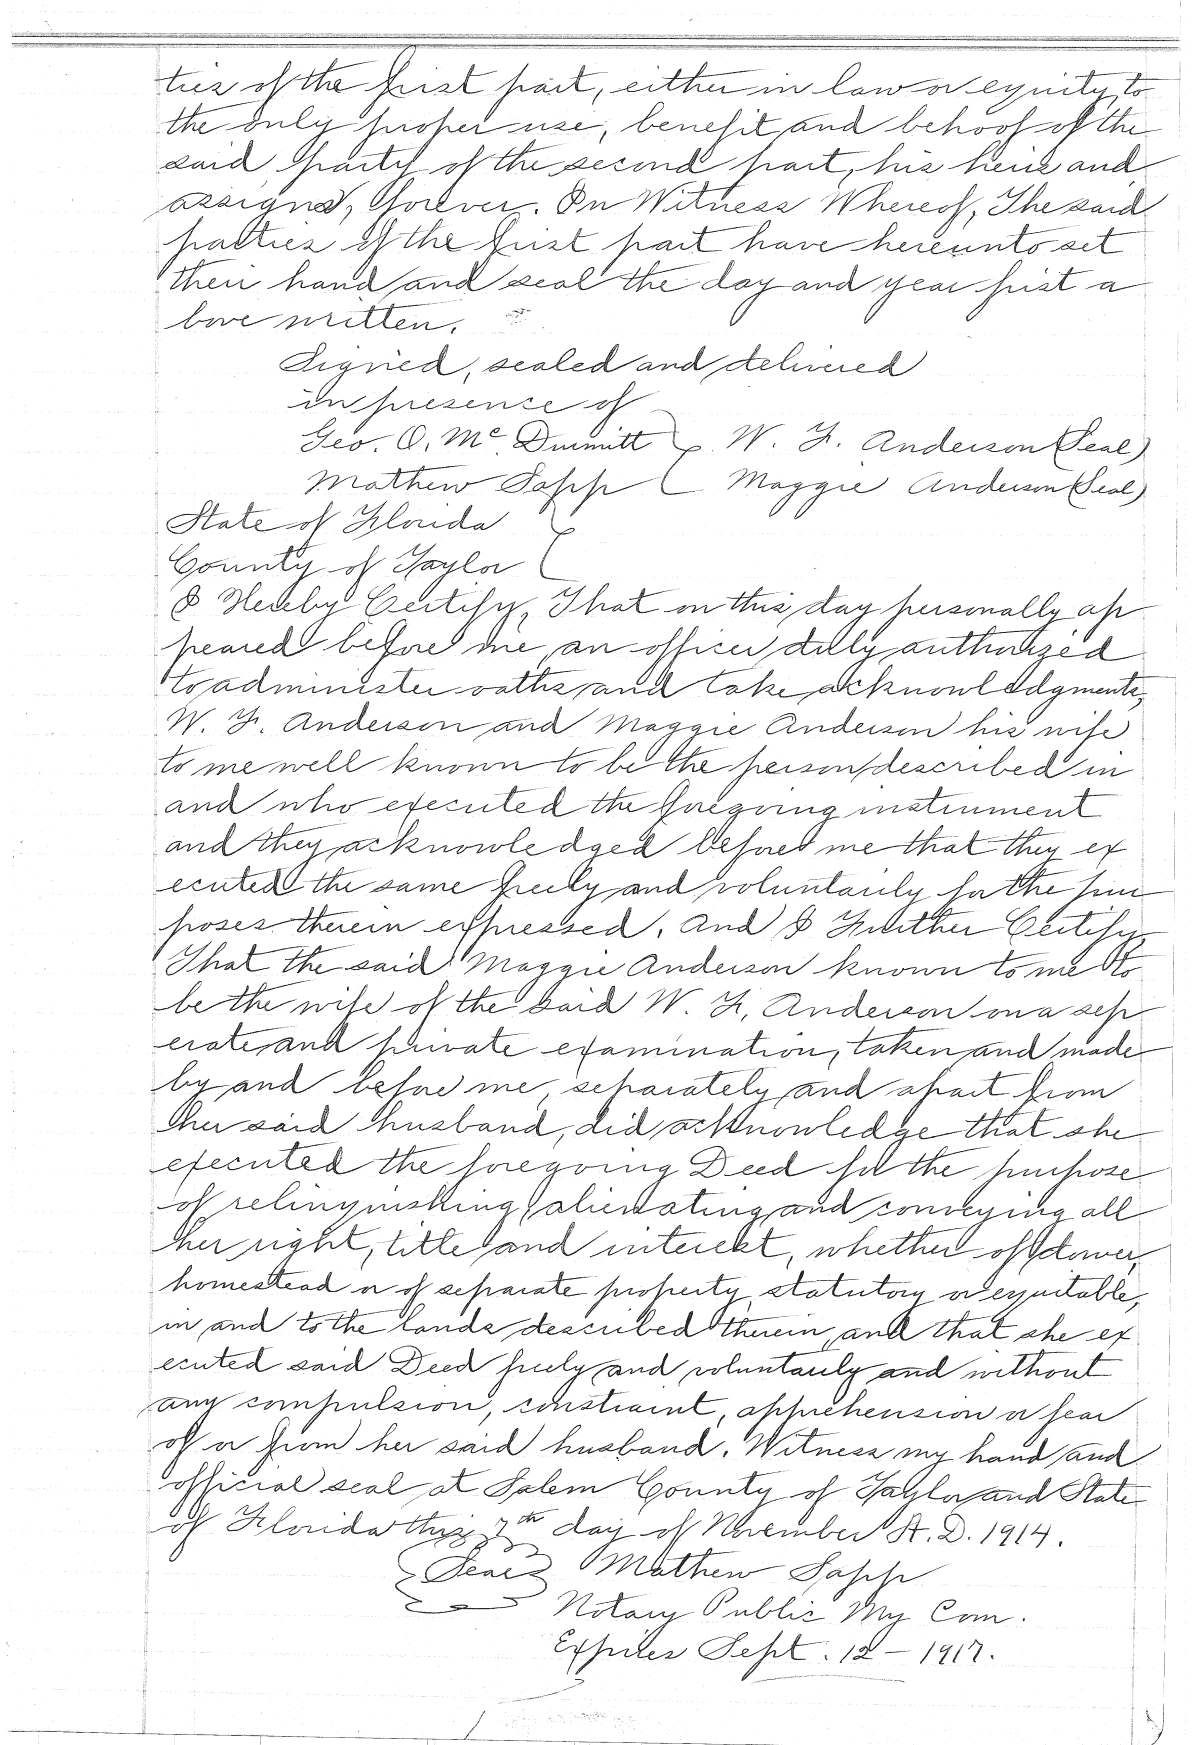 ties of the first part, either in law or equity, to
the only proper use, benefit and behoof of the
said party of the second part, his heirs and
assigns, forever. In Witness Whereof, The said
parties of the first part have hereunto set
their hand and seal the day and year first a
bove written.
Signed, sealed and delivered
in presence of
Geo. O. Mc W. F. Anderson (Seal)
Mathew Sapp Maggie Anderson (Seal)
State of Florida
County of Taylor
I Hereby Certify, That on this day personally ap
peared before me, an officer duly authorized
to administer oaths and take acknowledgments,
W. F. Anderson and Maggie Anderson his wife
to me well known to be the person described in
and who executed the foregoing instrument
and they acknowledged before me that they ex
ecuted the same freely and voluntarily for the pur
poses therein expressed. And I Further Certify
That the said Maggie Anderson known to me to
be the wife of the said W. F. Anderson on a sep
erate and private examination, taken and made
by and before me, separately and apart from
her said husband, did acknowledge that she
executed the foregoing Deed for the purpose
of relinquishing, alienating and conveying all
her right, title and interest, whether of dower,
homestead or of separate property, statutory or equitable,
in and to the lands described therein, and that she ex
ecuted said Deed freely and voluntarily and without
any compulsion, constraint, apprehension or fear
of or from her said husband. Witness my hand and
official seal at Salem County of Taylor and State
of Florida this 7th day of November A.D. 1914.
Seal Mathew Sapp
Notary Public My Com.
Expires Sept. 12 - 1917.